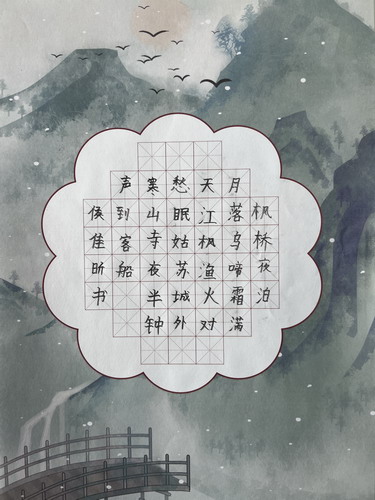 枫桥夜泊
月落乌啼霜满
天江枫渔火对
愁眠姑苏城外
寒山寺夜半钟
声到客船
侯佳昕书